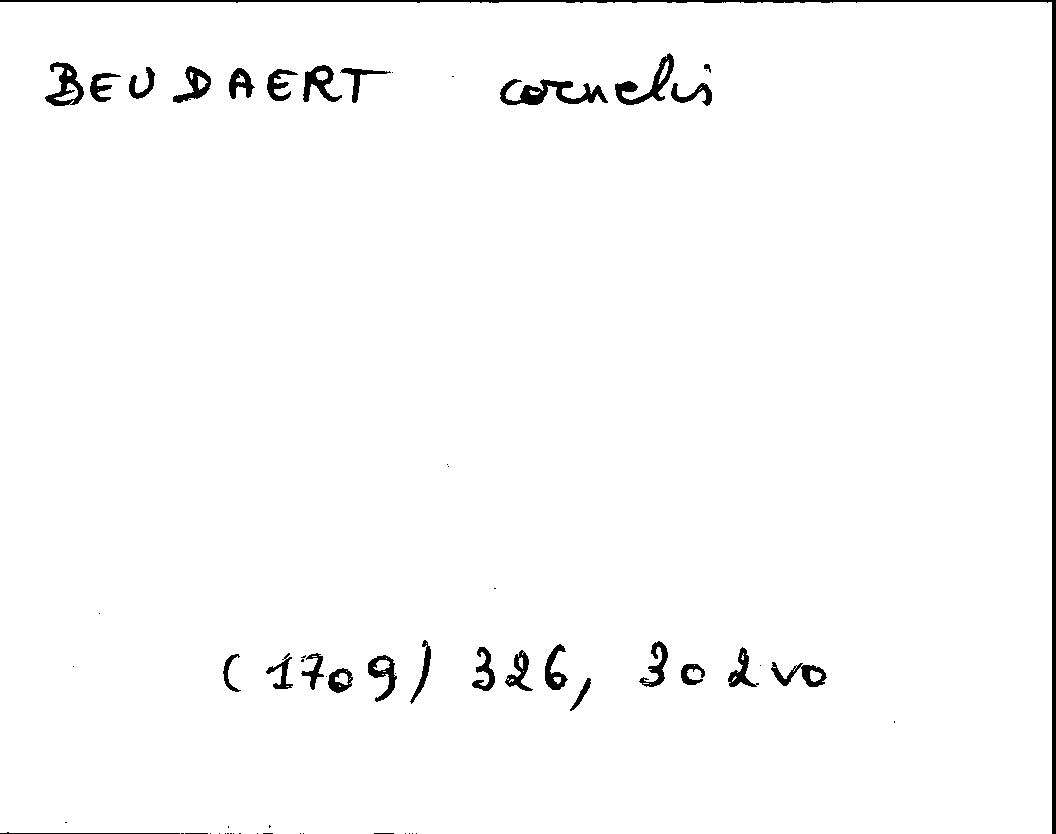 BEUDAERT cornelis
(1709) 326, 302vo